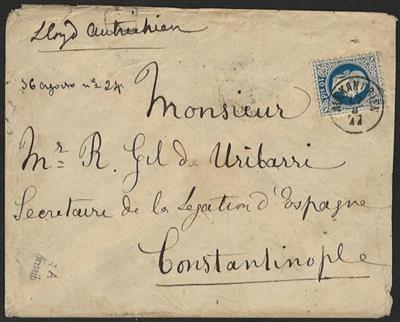 Lloyd autrichien
Monsieur
Mr. R. Gil de Uribarri
Secretaire de la Legation d'Espagne
Constantinople